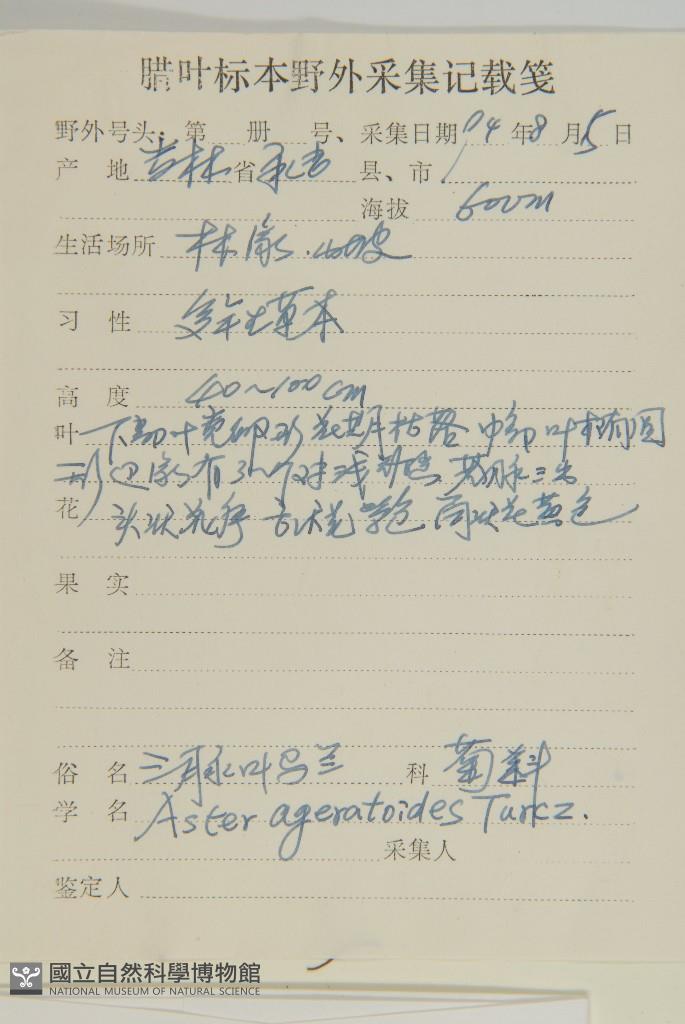 腊叶标本野外采集记载笺
野外号头: 第 册 号、采集日期 94 年 8 月 5 日
产 地 吉林 省 县、市
海拔 600m
生活场所 林缘.山坡
习 性 多年生草本
高 度 40~100cm
叶 下部叶 卵形 花期枯落 中部叶椭圆
形 边缘有 3~7对浅锯齿 三出
花 头状花序 舌状花紫色 筒状花黄色
果 实
备 注
俗 名 三脉叶马兰 科 菊科
学 名 Aster ageratoides Turcz.
采集人
鉴定人
國立自然科學博物館
NATIONAL MUSEUM OF NATURAL SCIENCE